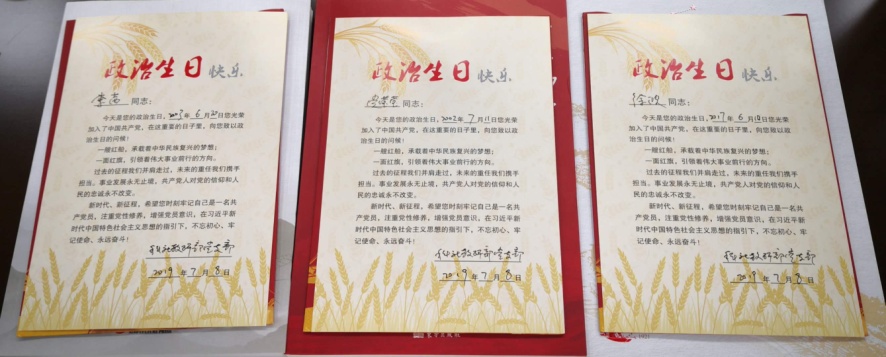 政治生日快乐
李苗 同志：
今天是您的政治生日，2003年6月30日您光荣
加入了中国共产党，在这重要的日子里，向您致以政
治生日的问候！
一艘红船，承载着中华民族复兴的梦想；
一面红旗，引领着伟大事业前行的方向。
过去的征程我们并肩走过，未来的重任我们携手
担当。事业发展永无止境，共产党人对党的信仰和人
民的忠诚永不改变。
新时代、新征程，希望您时刻牢记自己是一名共
产党员，注重党性修养，增强党员意识，在习近平新
时代中国特色社会主义思想的指引下，不忘初心、牢
记使命、永远奋斗！
教研部党支部
2019年7月8日
政治生日快乐
同志：
今天是您的政治生日，2002年7月11日您光荣
加入了中国共产党，在这重要的日子里，向您致以政
治生日的问候！
一艘红船，承载着中华民族复兴的梦想；
一面红旗，引领着伟大事业前行的方向。
过去的征程我们并肩走过，未来的重任我们携手
担当。事业发展永无止境，共产党人对党的信仰和人
民的忠诚永不改变。
新时代、新征程，希望您时刻牢记自己是一名共
产党员，注重党性修养，增强党员意识，在习近平新
时代中国特色社会主义思想的指引下，不忘初心、牢
记使命、永远奋斗！
教研部党支部
2019年7月8日
东方出版社
政治生日快乐
同志：
今天是您的政治生日，2017年6月18日您光荣
加入了中国共产党，在这重要的日子里，向您致以政
治生日的问候！
一艘红船，承载着中华民族复兴的梦想；
一面红旗，引领着伟大事业前行的方向。
过去的征程我们并肩走过，未来的重任我们携手
担当。事业发展永无止境，共产党人对党的信仰和人
民的忠诚永不改变。
新时代、新征程，希望您时刻牢记自己是一名共
产党员，注重党性修养，增强党员意识，在习近平新
时代中国特色社会主义思想的指引下，不忘初心、牢
记使命、永远奋斗！
教研部党支部
2019年7月8日